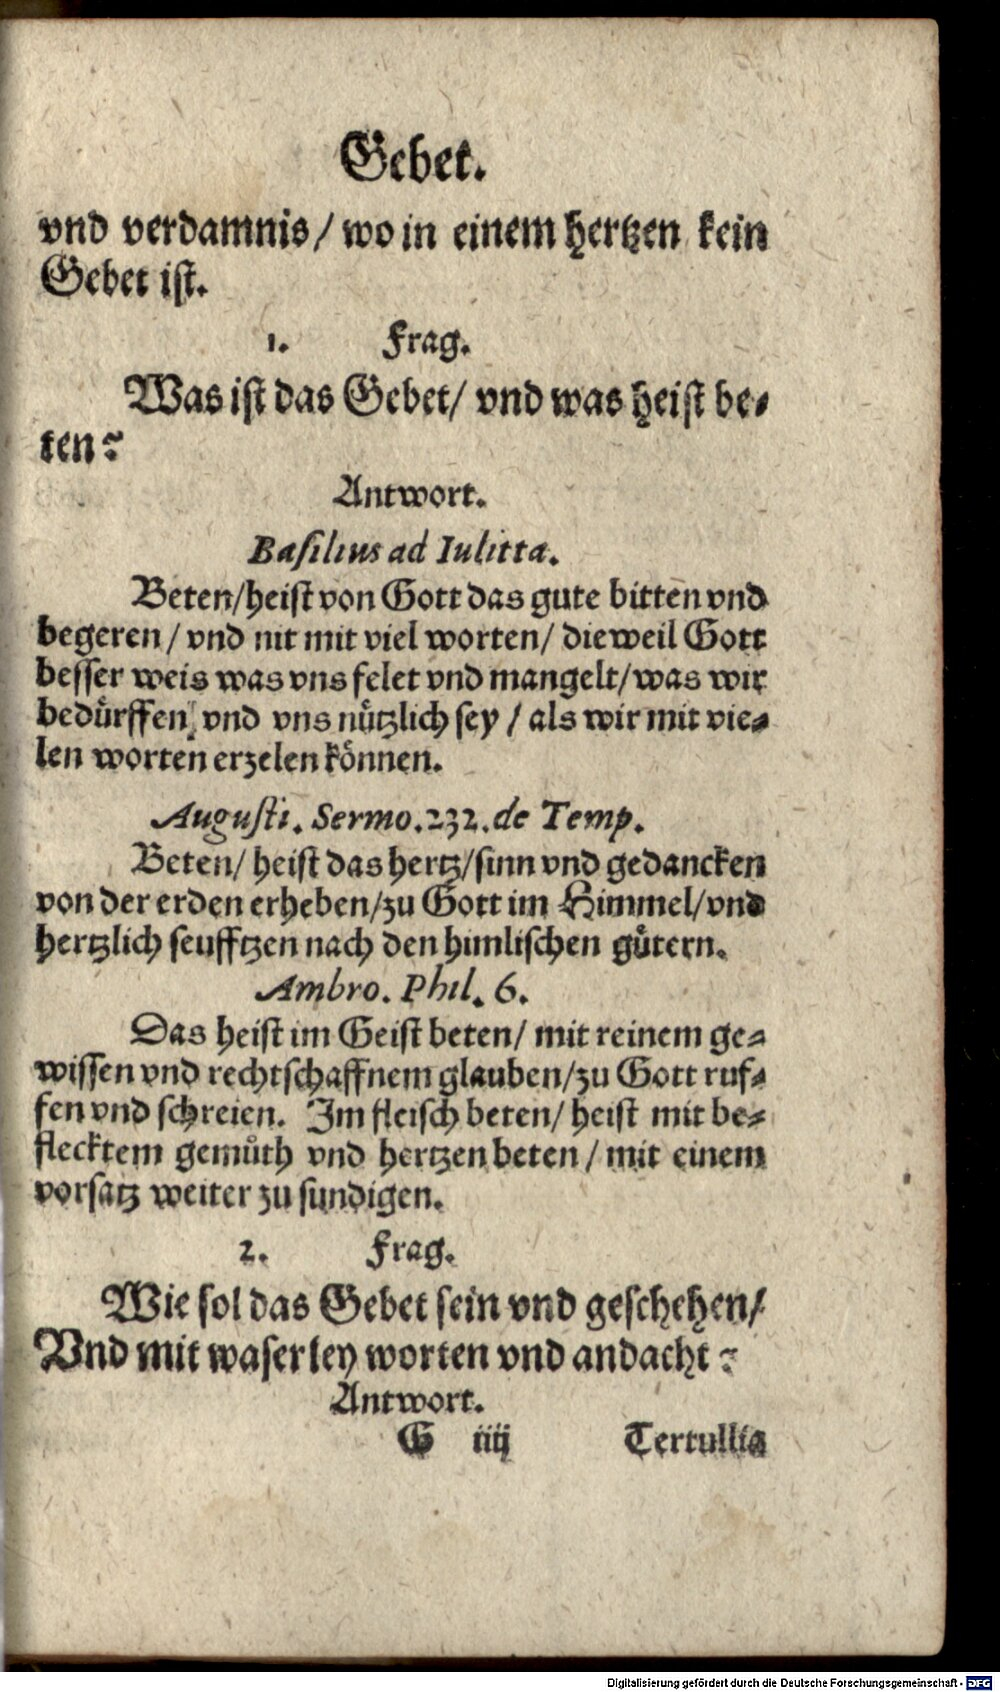 Gebet.
vnd verdamnis/ wo in einem hertzen kein
Gebet ist.
1. Frag.
Was ist das Gebet/ vnd was heist be-
ten?
Antwort.
Basilius ad Iulitta.
Beten/heist von Gott das gute bitten vnd
begeren/ vnd nit mit viel worten/ dieweil Gott
besser weis was vns felet vnd mangelt/was wir
bedürffen, vnd vns nützlich sey/ als wir mit vie-
len worten erzelen können.
Augusti. Sermo.232.de Temp.
Beten/ heist das hertz/sinn vnd gedancken
von der erden erheben/zu Gott im Himmel/vnd
hertzlich seufftzen nach den himlischen gütern.
Ambro. Phil. 6.
Das heist im Geist beten/ mit reinem ge-
wissen vnd rechtschaffnem glauben/zu Gott ruf-
fen vnd schreien. Im fleisch beten/ heist mit be-
flecktem gemüth vnd hertzen beten/ mit einem
vorsatz weiter zu sundigen.
2. Frag.
Wie sol das Gebet sein vnd geschehen/
Vnd mit waserley worten vnd andacht?
Antwort.
G iiij Tertullia
Digitalisierung gefördert durch die Deutsche Forschungsgemeinschaft - DFG